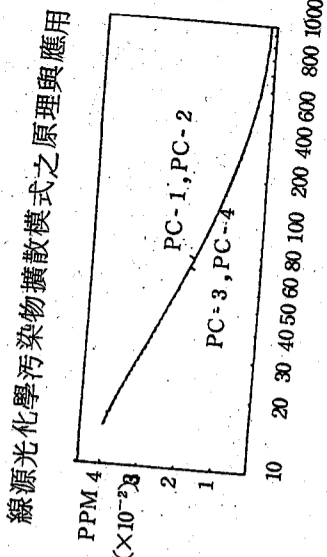 線源光化學污染物擴散模式之原理與應用
PPM 4
(×10⁻²)3
2
1
PC-1,PC-2
PC=3,PC-4
10 20 30 40 50 60 80 100 200 400 600 800 1000